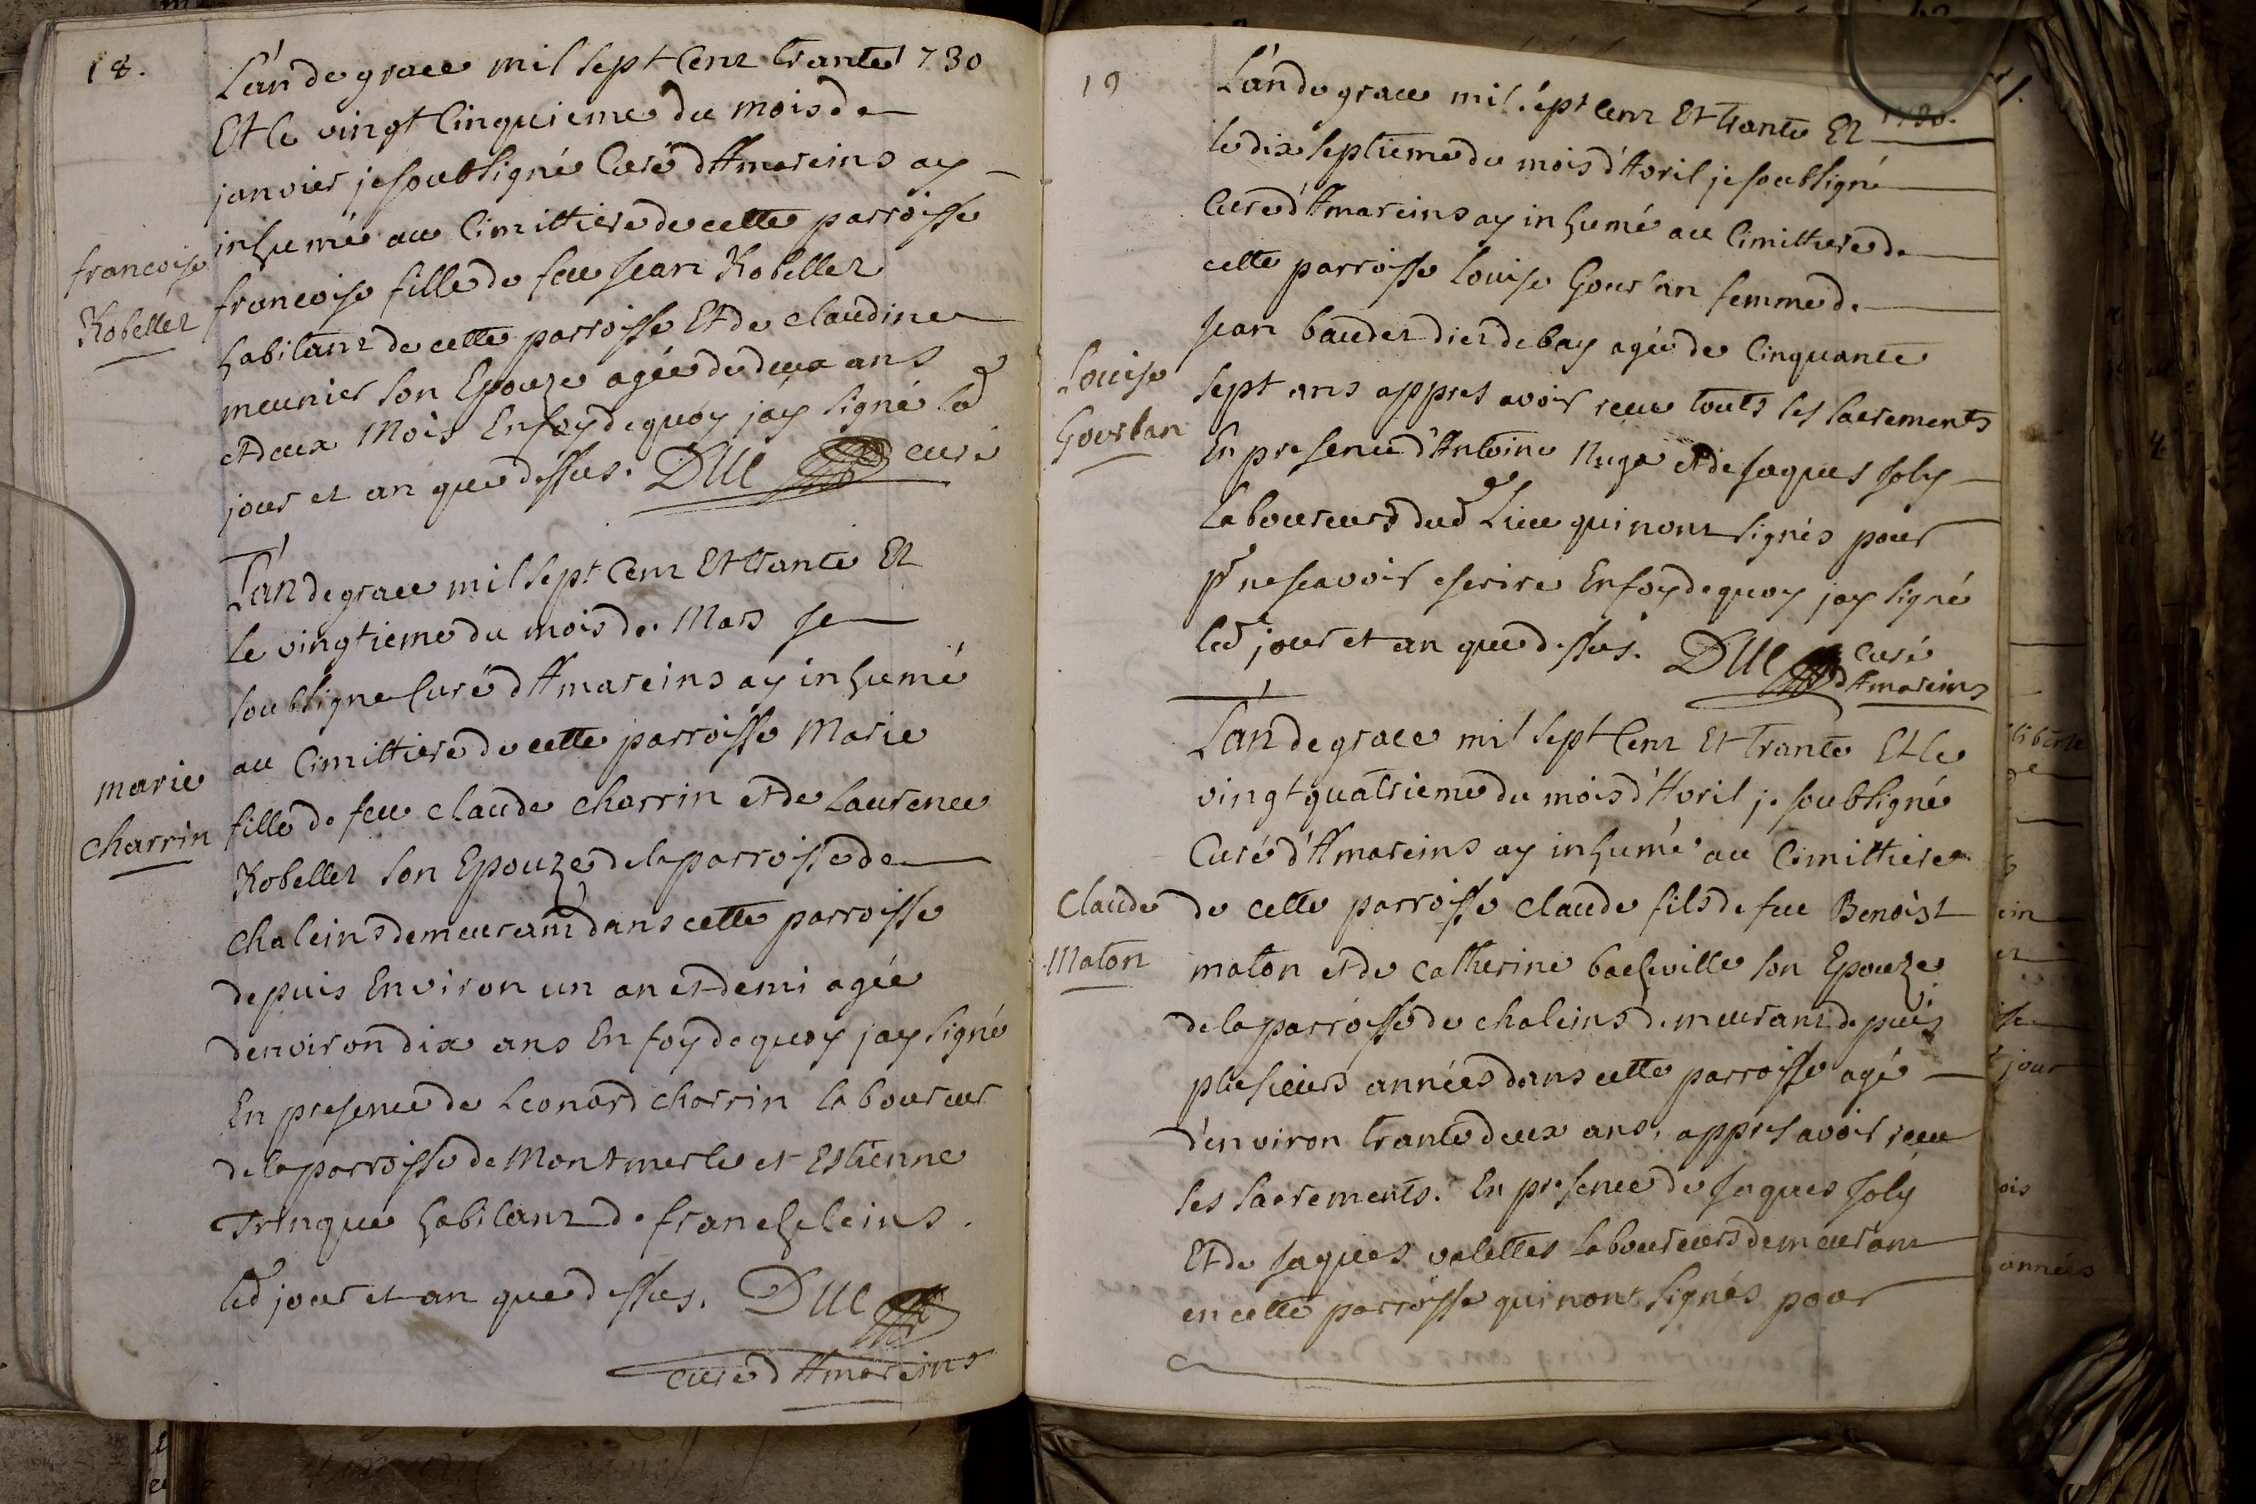 18.
L'an de grace mil sept cent trante 1730
Et le vingt cinquieme du mois de
janvier je soubsigné Curé d'Amareins ay
inhumé au Cimittiere de cette parroisse
francoise
francoise fille de feu Jean Robellet
Robellet
habitant de cette parroisse Et de claudine
meunier son Epouze agée de deux ans
et deux Mois En foy de quoy j'ay signé led
jour et an que dessus. DUC curé
L'an de grace mil sept Cent Et trante Et
le vingtieme du mois de Mars Je
soubsigne Curé d'Amareins ay inhumé
au Cimittiere de cette parroisse Marie
marie
fille de feu claude charrin et de Laurence
charrin
Robellet son Epouze de la parroisse de
chaleins demeurant dans cette parroisse
depuis Environ un an et demi agée
d'environ dix ans En foy de quoy jay signé
En presence de Leonard charrin laboureur
de la parroisse de Montmerle et Estienne
Trinque habitant de francheleins.
led jour et an que dessus. DUC
curé d'Amareins
19
L'an de grace mil sept cent Et trante Et 1730.
le dix septieme du mois d'Avril je soubsigné
Curé d'Amareins ay inhumé au Cimittiere de
cette parroisse louise Gourlan femme de
Jean baudet dier de bay agée de Cinquante
Louise
sept ans appres avoir receu touts les sacrements
Gourlan
En presence d'Antoine Nuga et de Jaques Joly
laboureurs dud Lieu qui n'ont signés pour
pr ne scavoir escrire En foy de quoy jay signé
led jour et an que dessus. DUC Curé
d'Amareins
L'an de grace mil sept Cent Et trante Et le
vingt quatrieme du mois d'Avril je soubsigné
Curé d'Amareins ay inhumé au Cimittiere
Claude
de cette parroisse claude fils de feu Benoist
Maton
maton et de catherine bacheville son Epouze
de la parroisse de chaleins demeurant depuis
plusieurs années dans cette parroisse agé
d'environ trante deux ans, appres avoir receu
les sacrements. En presence de Jaques Joly
Et de Jaques valettes laboureurs demeurant
en cette parroisse qui n'ont signés pour